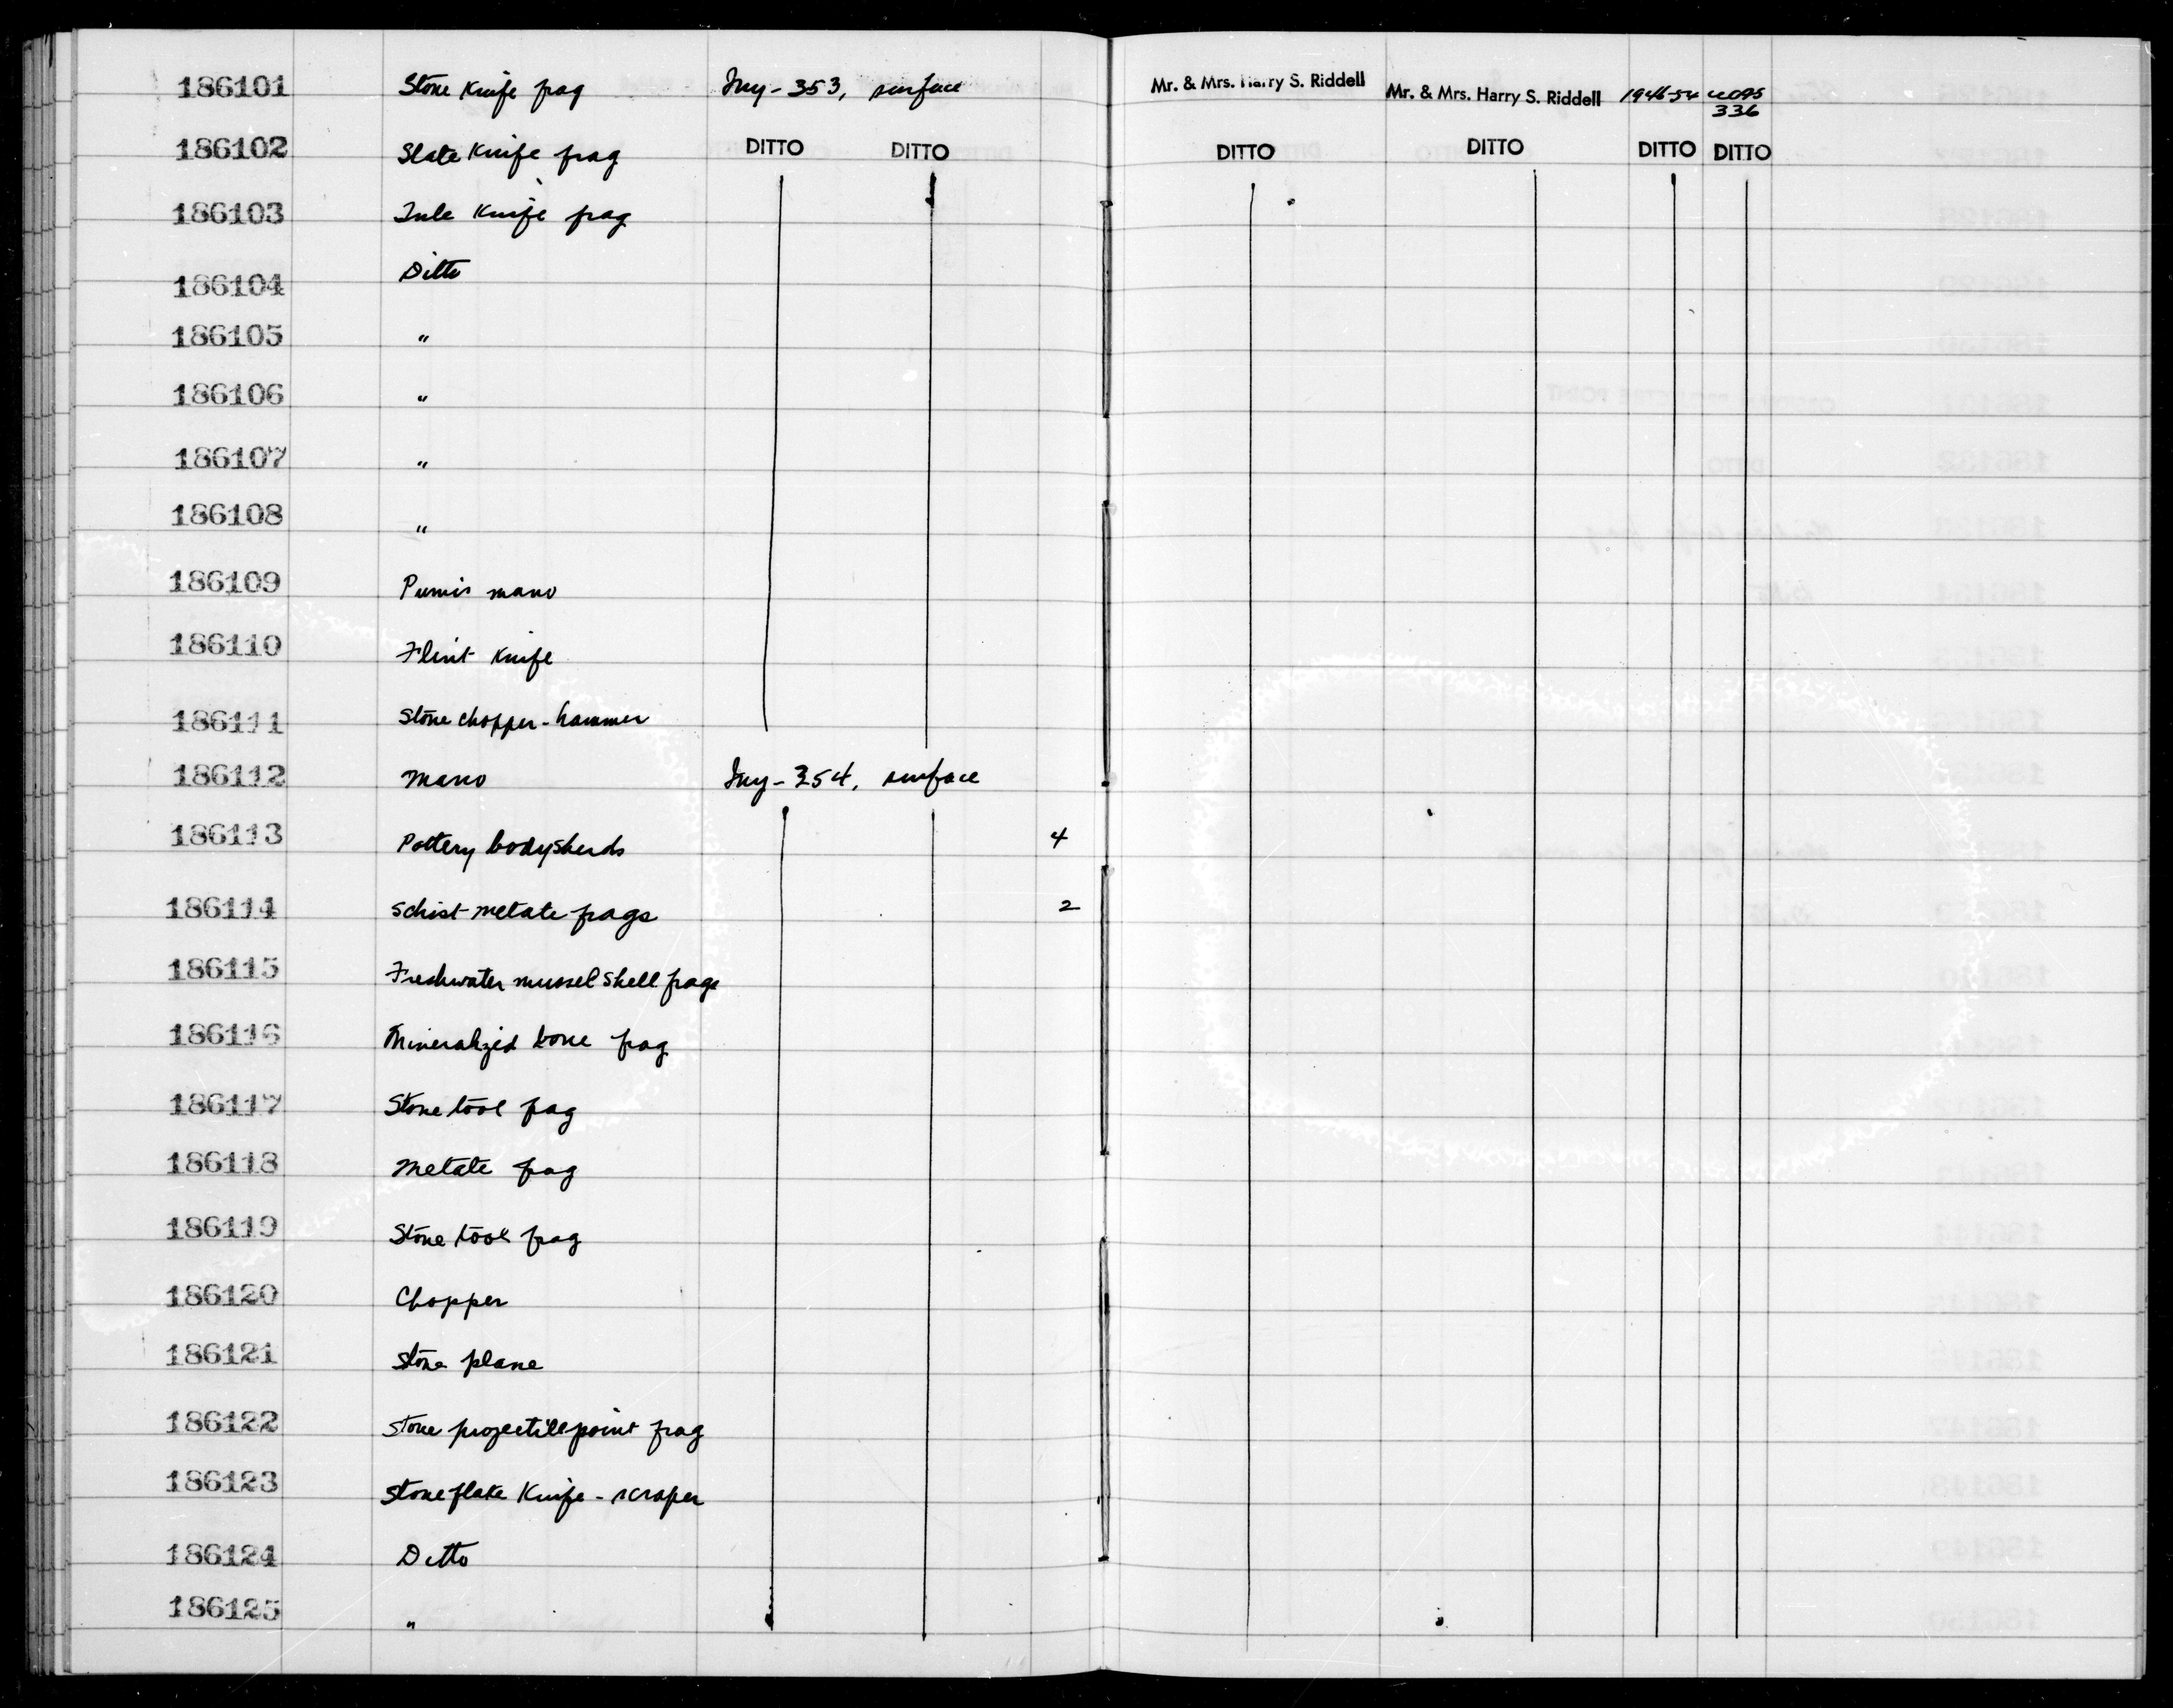 186101 Stone Knife frag Iny-353, surface Mr. & Mrs. Harry S. Riddell Mr. & Mrs. Harry S. Riddell 1946-54
336
186102 Slate Knife frag DITTO DITTO DITTO DITTO DITTO DITTO
186103 Knife frag
186104 Ditto
186105 "
186106 "
186107 "
186108 "
186109 Pumis mano
186110 Flint Knife
186111 Stone chopper-hammer
186112 Mano Iny-354, surface
186113 Pottery bodysherds 4
186114 Schist metate frags 2
186115 Freshwater mussel shell frags
186116 Mineralized bone frag
186117 Stone tool frag
186118 Metate frag
186119 Stone tool frag
186120 Chopper
186121 Stone plane
186122 Stone projectile point frag
186123 Stone flake Knife-scraper
186124 Ditto
186125 "